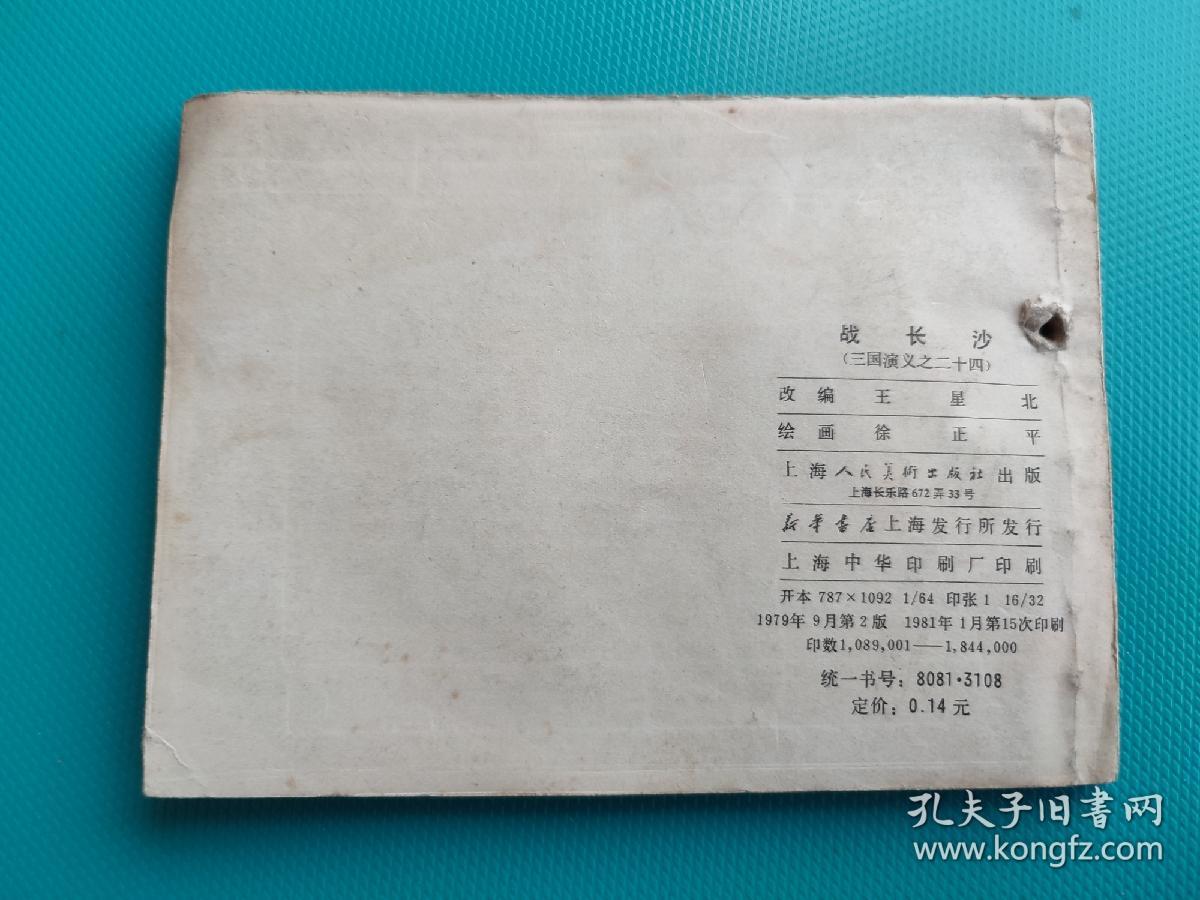 战长沙
（三国演义之二十四）
改编 王星北
绘画 徐正平
上海人民美術出版社出版
上海长乐路672弄33号
新华書店上海发行所发行
上海中华印刷厂印刷
开本 787×1092 1/64 印张 1 16/32
1979年9月第2版 1981年1月第15次印刷
印数1,089,001——1,844,000
统一书号：8081·3108
定价：0.14元
孔夫子旧書网
www.kongfz.com